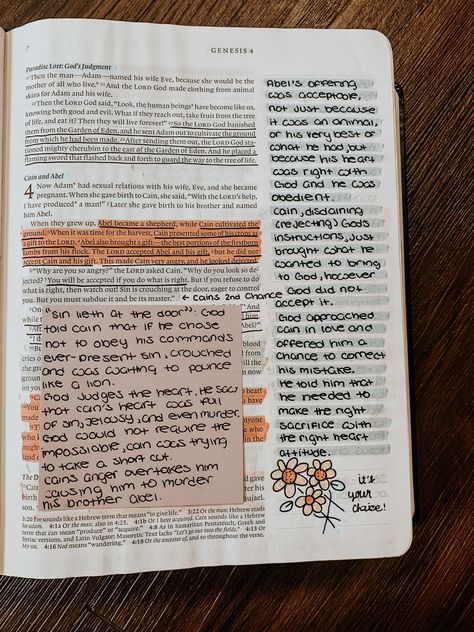 7
GENESIS 4
Paradise Lost: God's Judgment
20Then the man—Adam—named his wife Eve, because she would be the
mother of all who live.* 21And the LORD God made clothing from animal
skins for Adam and his wife.
22Then the LORD God said, "Look, the human beings* have become like us,
knowing both good and evil. What if they reach out, take fruit from the tree
of life, and eat it? Then they will live forever!" 23So the LORD God banished
them from the Garden of Eden, and he sent Adam out to cultivate the ground
from which he had been made. 24After sending them out, the LORD God sta-
tioned mighty cherubim to the east of the Garden of Eden. And he placed a
flaming sword that flashed back and forth to guard the way to the tree of life.
Cain and Abel
4 Now Adam* had sexual relations with his wife, Eve, and she became
pregnant. When she gave birth to Cain, she said, "With the LORD's help,
I have produced* a man!" 2Later she gave birth to his brother and named
him Abel.
When they grew up, Abel became a shepherd, while Cain cultivated the
ground. 3When it was time for the harvest, Cain presented some of his crops as
a gift to the LORD. 4Abel also brought a gift—the best portions of the firstborn
lambs from his flock. The LORD accepted Abel and his gift, 5but he did not
accept Cain and his gift. This made Cain very angry, and he looked dejected.
6"Why are you so angry?" the LORD asked Cain. "Why do you look so de-
jected? 7You will be accepted if you do what is right. But if you refuse to do
what is right, then watch out! Sin is crouching at the door, eager to control
you. But you must subdue it and be its master."
← Cains 2nd Chance
"Sin lieth at the door". God
told cain that if he chose
not to obey his commands
ever-present sin, crouched
and was waiting to pounce
like a lion.
God judges the heart, He saw
that cain's heart was full
of sin, jelousy, and even murder.
God would not require the
impossiable, cain was trying
to take a short cut.
cains anger overtakes him
causing him to murder
his brother Abel.
Abel's offering
was acceptable,
not just because
it was an animal,
or his very best of
what he had, but
because his heart
was right with
God and he was
obedient.
cain, disdaining
(rejecting) God's
instructions, just
brought what he
wanted to bring
to God, however
God did not
accept it.
God approached
cain in love and
offered him a
chance to correct
his mistake.
He told him that
he needed to
make the right
sacrifice with
the right heart
attitude.
it's
your
choice!
3:20 Eve sounds like a Hebrew term that means "to give life." 3:22 Or the man; Hebrew reads
4:1a Or the man; also in 4:25. 4:1b Or I have acquired. Cain sounds like a Hebrew
term that can mean "produce" or "acquire." 4:8 As in Samaritan Pentateuch, Greek and
Syriac versions, and Latin Vulgate; Masoretic Text lacks "Let's go out into the fields."
4:16 Nod means "wandering."